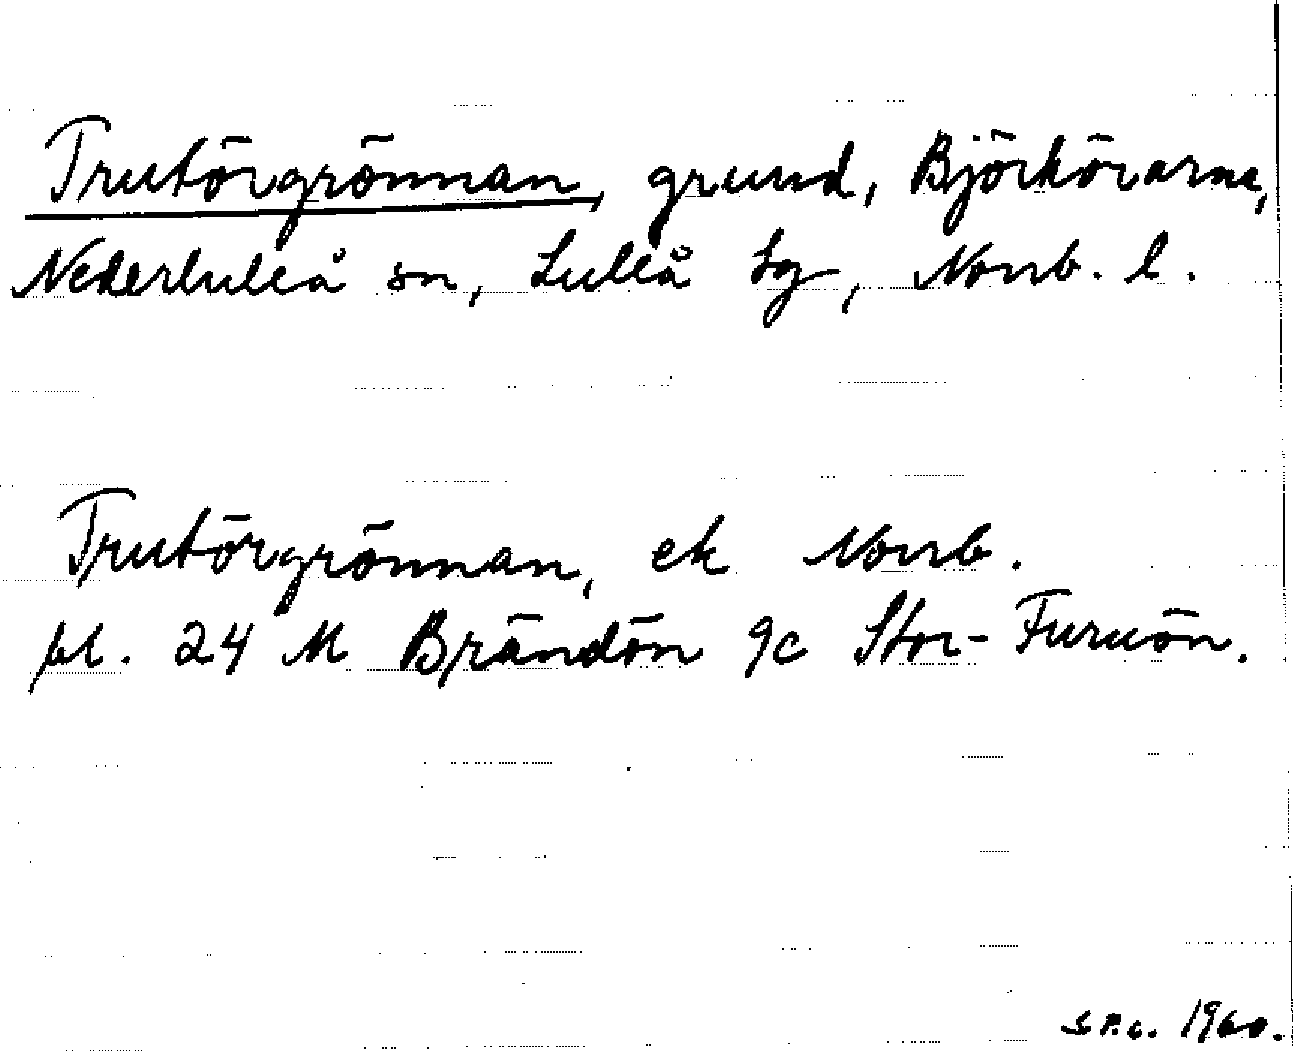 Trutörgrönnan, grund, Björkörarna,
Nederluleå sn, Luleå tg, Norrb. l.
Trutörgrönnan, ek Norrb.
bl. 24 M Brändön 9c Stor-Furuön.
1960.